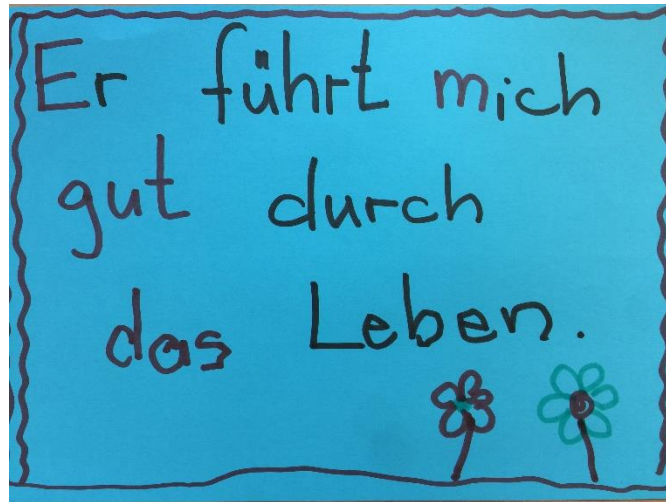 Er führt mich
gut durch
das Leben.